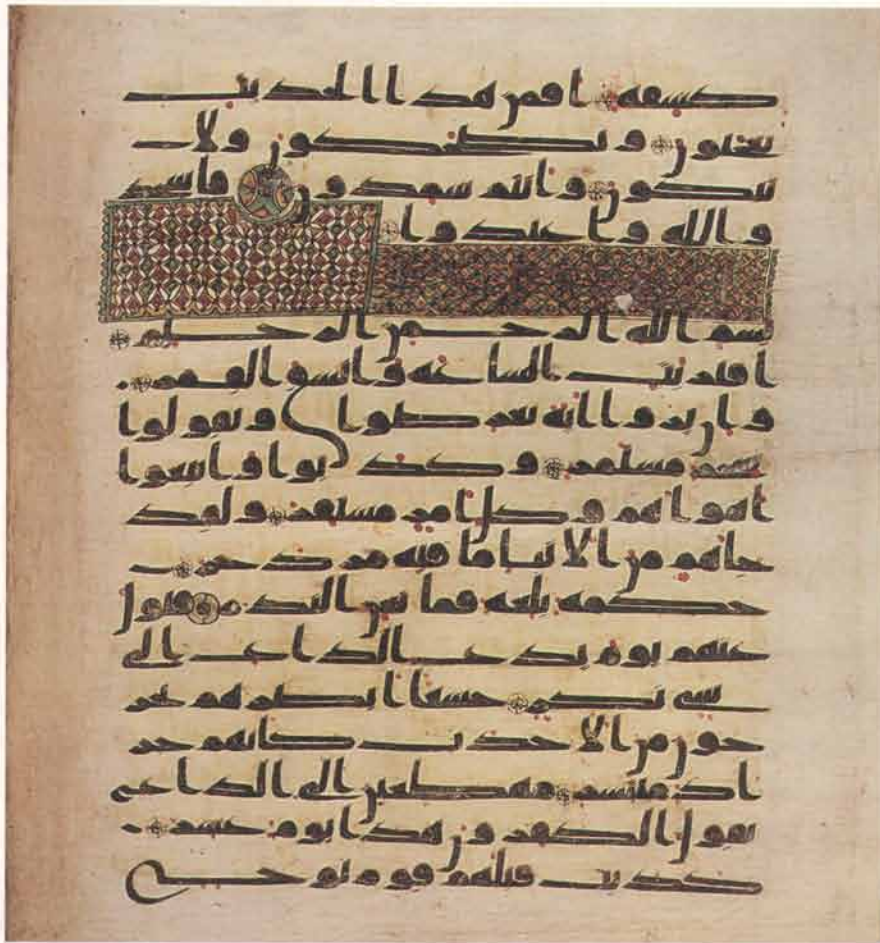 كشفه افمن هذا الحديث
تعجبون وتضحكون ولا
تبكون وانتم سمدون فاسجد
وا لله واعبدوا
بسم الله الرحمن الرحيم
اقتربت الساعه وانشق القمر
وان يروا ايه يعرضوا ويقولوا
سحر مستمر وكذبوا واتبعوا
اهواهم وكل امر مستقر ولقد
جاهم من الانبا ما فيه مزدجر
حكمه بلغه فما تغن النذر فتول
عنهم يوم يدع الداع الى
شى نكر خشعا ابصرهم يخر
جون من الاجدث كانهم جر
اد منتشر مهطعين الى الداع
يقول الكفرون هذا يوم عسر
كذبت قبلهم قوم نوح